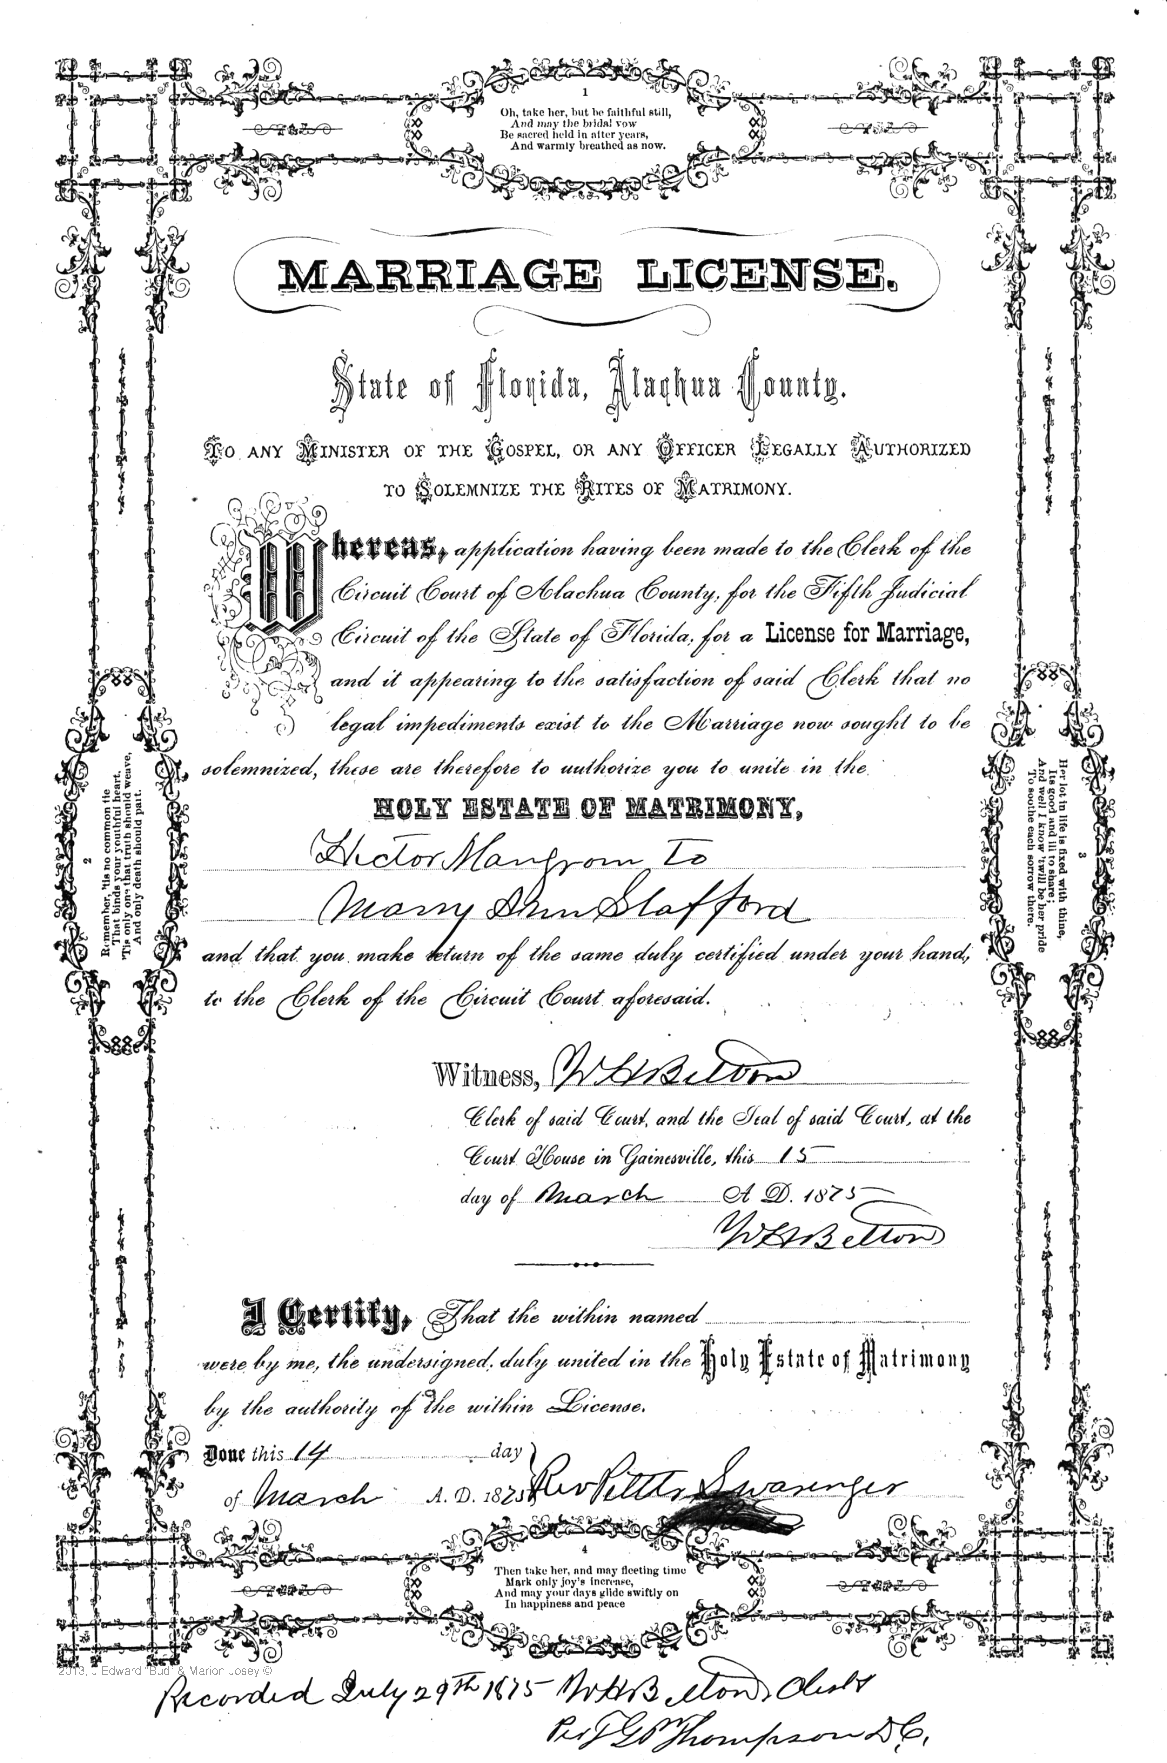 1
Oh, take her, but be faithful still,
And may the bridal vow
Be sacred held in after years,
And warmly breathed as now.
MARRIAGE LICENSE.
State of Florida, Alachua County.
TO ANY MINISTER OF THE GOSPEL, OR ANY OFFICER LEGALLY AUTHORIZED
TO SOLEMNIZE THE RITES OF MATRIMONY.
Whereas, application having been made to the Clerk of the
Circuit Court of Alachua County, for the Fifth Judicial
Circuit of the State of Florida, for a License for Marriage,
and it appearing to the satisfaction of said Clerk that no
legal impediments exist to the Marriage now sought to be
solemnized, these are therefore to authorize you to unite in the
HOLY ESTATE OF MATRIMONY,
Hector Mangrom To
Marry Ann Slafford
and that you make return of the same duly certified under your hand,
to the Clerk of the Circuit Court aforesaid.
Witness, W H Belton
Clerk of said Court, and the Seal of said Court, at the
Court House in Gainesville, this 15
day of March A D. 1875
W H Belton
I Certify, That the within named
were by me, the undersigned, duly united in the Holy Estate of Matrimony
by the authority of the within License.
Done this 14 day
of March A. D. 1875 Rev Swaringer
2
Remember, 'tis no common tie
That binds your youthful heart,
'Tis only one that truth should weave,
And only death should part.
3
Her lot in life is fixed with thine,
Its good and ill to share;
And well I know 'twill be her pride
To soothe each sorrow there.
4
Then take her, and may fleeting time
Mark only joy's increase,
And may your days glide swiftly on
In happiness and peace
2013, J Edward "Bud" & Marion Josey ©
Recorded July 29th 1875 W H Belton Clerk
Per T G P Thompson D C.